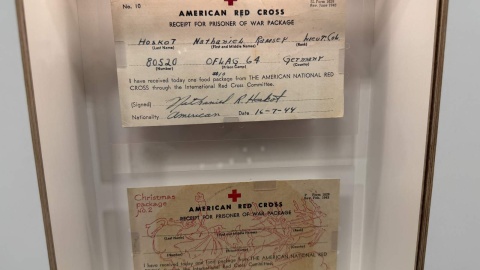 No. 10
AMERICAN RED CROSS
RECEIPT FOR PRISONER OF WAR PACKAGE
Hoskot Nathaniel Ramsey Lieut. Col
(Last Name) (First and Middle Names) (Rank)
80520 OFLAG 64 Germany
(Number) (Prison Camp) (Country)
I have received today one food package from THE AMERICAN NATIONAL RED
CROSS through the International Red Cross Committee.
(Signed) Nathaniel R. Hoskot
Nationality American Date 16-7-44
Christmas
package
AMERICAN RED CROSS
RECEIPT FOR PRISONER OF WAR PACKAGE
(Last Name) (First and Middle Names) (Rank)
(Number) (Prison Camp) (Country)
I have received today one food package from THE AMERICAN NATIONAL RED